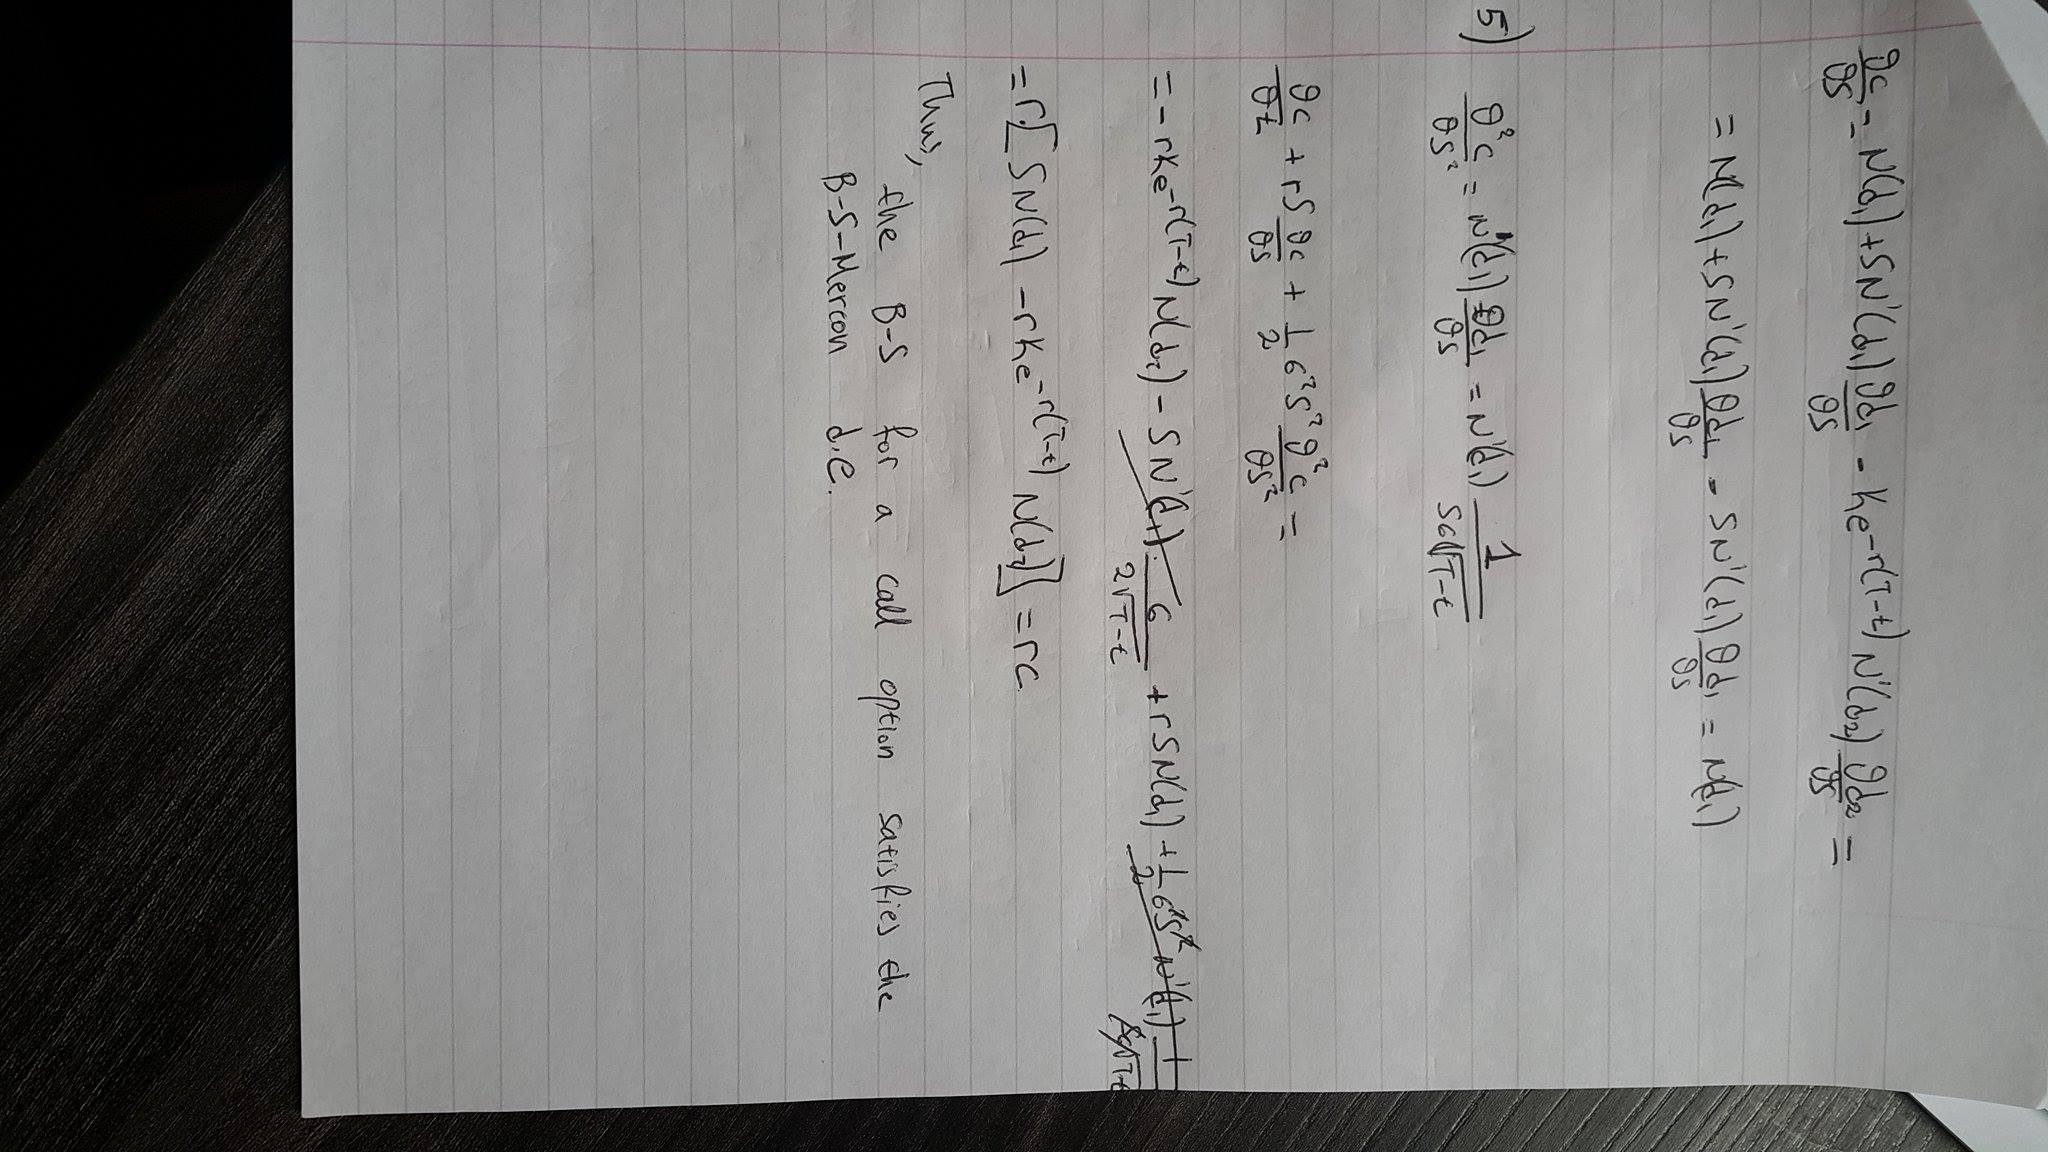 ∂c/∂S = N(d₁) + SN'(d₁) ∂d₁/∂S - Ke^-r(T-t) N'(d₂) ∂d₂/∂S =
= N(d₁) + SN'(d₁) ∂d₁/∂S - SN'(d₁) ∂d₁/∂S = N(d₁)
5) ∂²c/∂S² = N'(d₁) ∂d₁/∂S = N'(d₁) 1/(Sσ√T-t)
∂c/∂t + rS ∂c/∂S + 1/2 σ²S² ∂²c/∂S² =
= -rKe^-r(T-t) N(d₂) - SN'(d₁) · σ/(2√T-t) + rSN(d₁) + 1/2 σ²S² N'(d₁) 1/(Sσ√T-t)
= r·[SN(d₁) - rKe^-r(T-t) N(d₂)] = rc
Thus,
the B-S for a call option satisfies the
B-S-Mercon d.e.